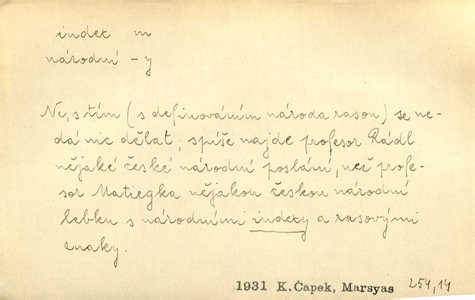 index m
národní -y
Ne, s tím (s definováním národa rasou) se ne-
dá nic dělat; spíše najde profesor Rádl
nějaké české národní poslání, než profe-
sor Matiegka nějakou českou národní
lebku s národními indexy a rasovými
znaky.
1931 K. Čapek, Marsyas 254,14